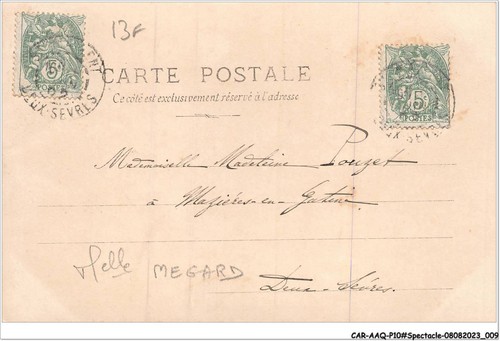 13F
5
DEUX-SÈVRES
5
POSTES
CARTE POSTALE
Ce côté est exclusivement réservé à l'adresse
Mademoiselle Madeleine Pouzet
à Mazières-en-Gatine
Melle MEGARD
Deux-Sèvres.
CAR-AAQ-P10#Spectacle-08082023_009